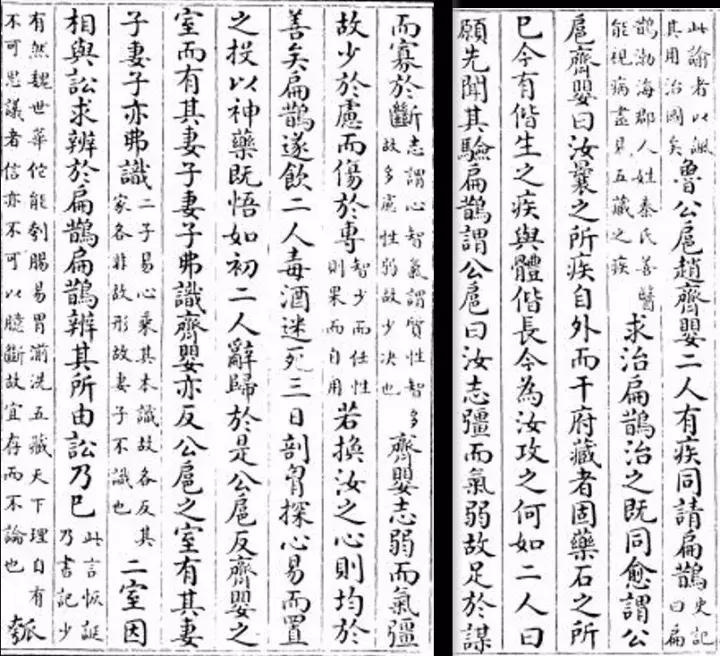 此諭者以諷其用治國矣魯公扈趙齊嬰二人有疾同請扁鵲史記曰扁
鵲渤海郡人姓秦氏善醫能視病盡見五藏之疾求治扁鵲治之既同愈謂公
扈齊嬰曰汝曩之所疾自外而干府藏者固藥石之所
巳今有偕生之疾與體偕長今為汝攻之何如二人曰
願先聞其驗扁鵲謂公扈曰汝志彊而氣弱故足於謀
而寡於斷志謂心智氣謂質性智多故多慮性弱故少决也齊嬰志弱而氣彊
故少於慮而傷於專智少而任性則果而自用若換汝之心則均於
善矣扁鵲遂飲二人毒酒迷死三日剖胷探心易而置
之投以神藥既悟如初二人辭歸於是公扈反齊嬰之
室而有其妻子妻子弗識齊嬰亦反公扈之室有其妻
子妻子亦弗識二子易心乘其本識故各反其家各非故形故妻子不識也二室因
相與訟求辨於扁鵲扁鵲辨其所由訟乃巳此言恢誕乃書記少
有然魏世華佗能刳腸易胃湔洗五藏天下理自有不可思議者信亦不可以臆斷故宜存而不論也瓠